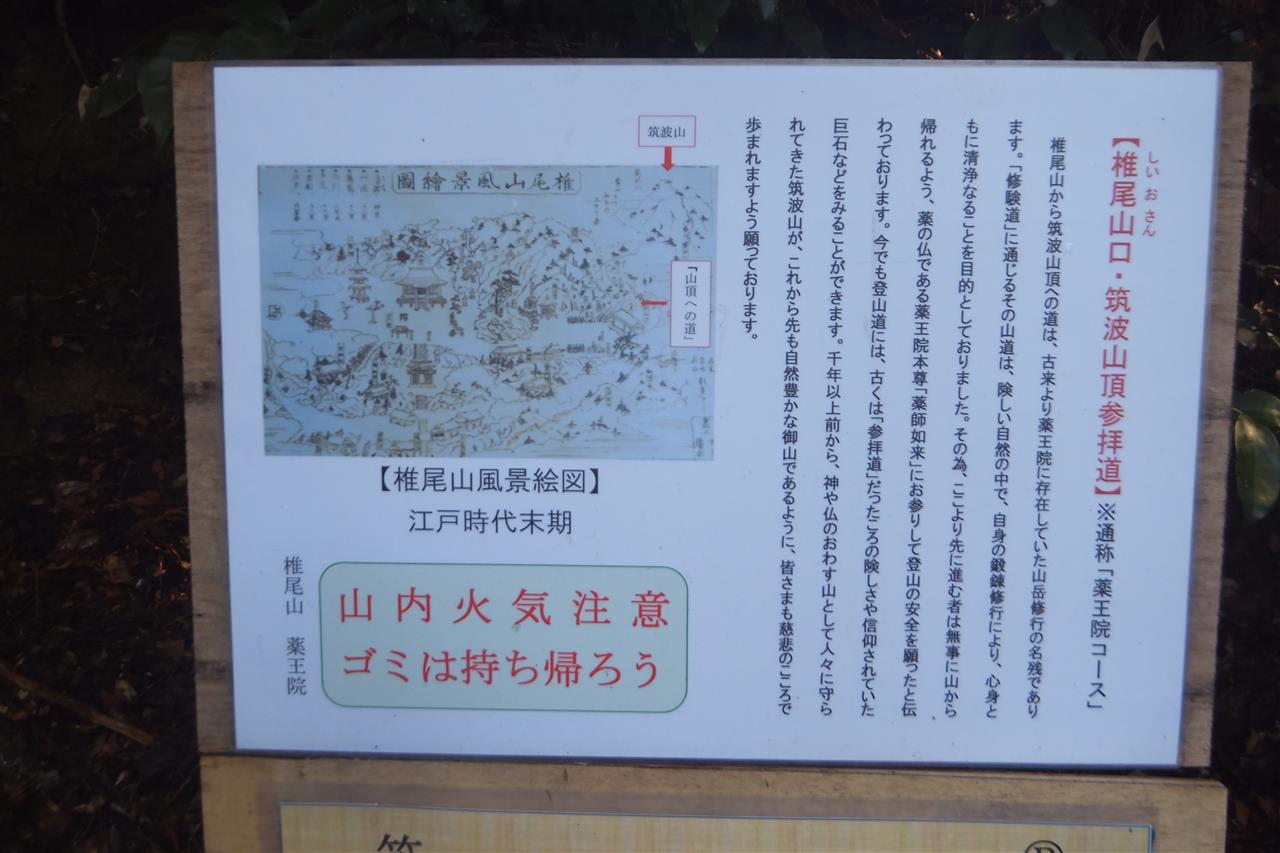 【椎尾山口・筑波山頂参拝道】※通称「薬王院コース」
しいおさん
椎尾山から筑波山頂への道は、古来より薬王院に存在していた山岳修行の名残であり
ます。「修験道」に通じるその山道は、険しい自然の中で、自身の鍛錬修行により、心身と
もに清浄なることを目的としておりました。その為、ここより先に進む者は無事に山から
帰れるよう、薬の仏である薬王院本尊「薬師如来」にお参りして登山の安全を願ったと伝
わっております。今でも登山道には、古くは「参拝道」だったころの険しさや信仰されていた
巨石などをみることができます。千年以上前から、神や仏のおわす山として人々に守ら
れてきた筑波山が、これから先も自然豊かな御山であるように、皆さまも慈悲のこころで
歩まれますよう願っております。
筑波山
椎尾山風景繪圖
「山頂への道」
【椎尾山風景絵図】
江戸時代末期
山内火気注意
ゴミは持ち帰ろう
椎尾山 薬王院